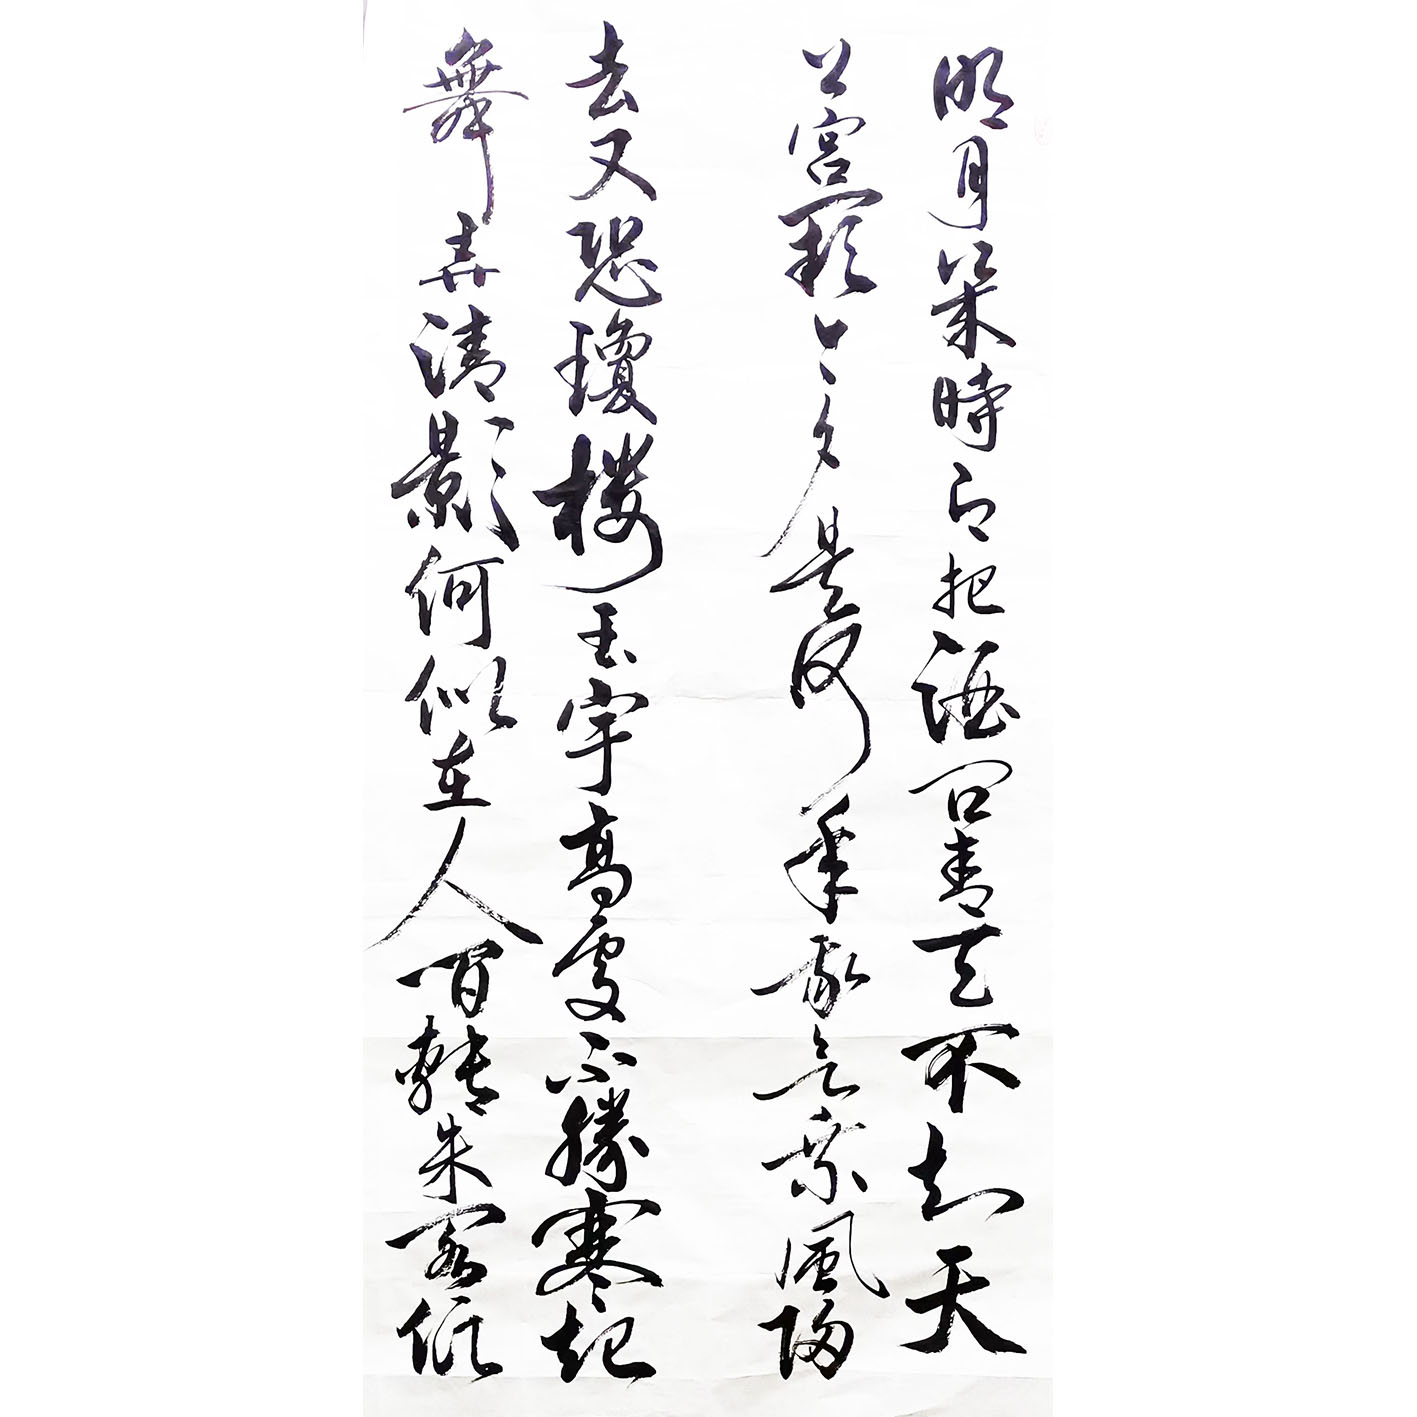 明月幾時有把酒問青天不知天
上宮闕今夕是何年我欲乘風歸
去又恐瓊樓玉宇高處不勝寒起
舞弄清影何似在人間轉朱閣低